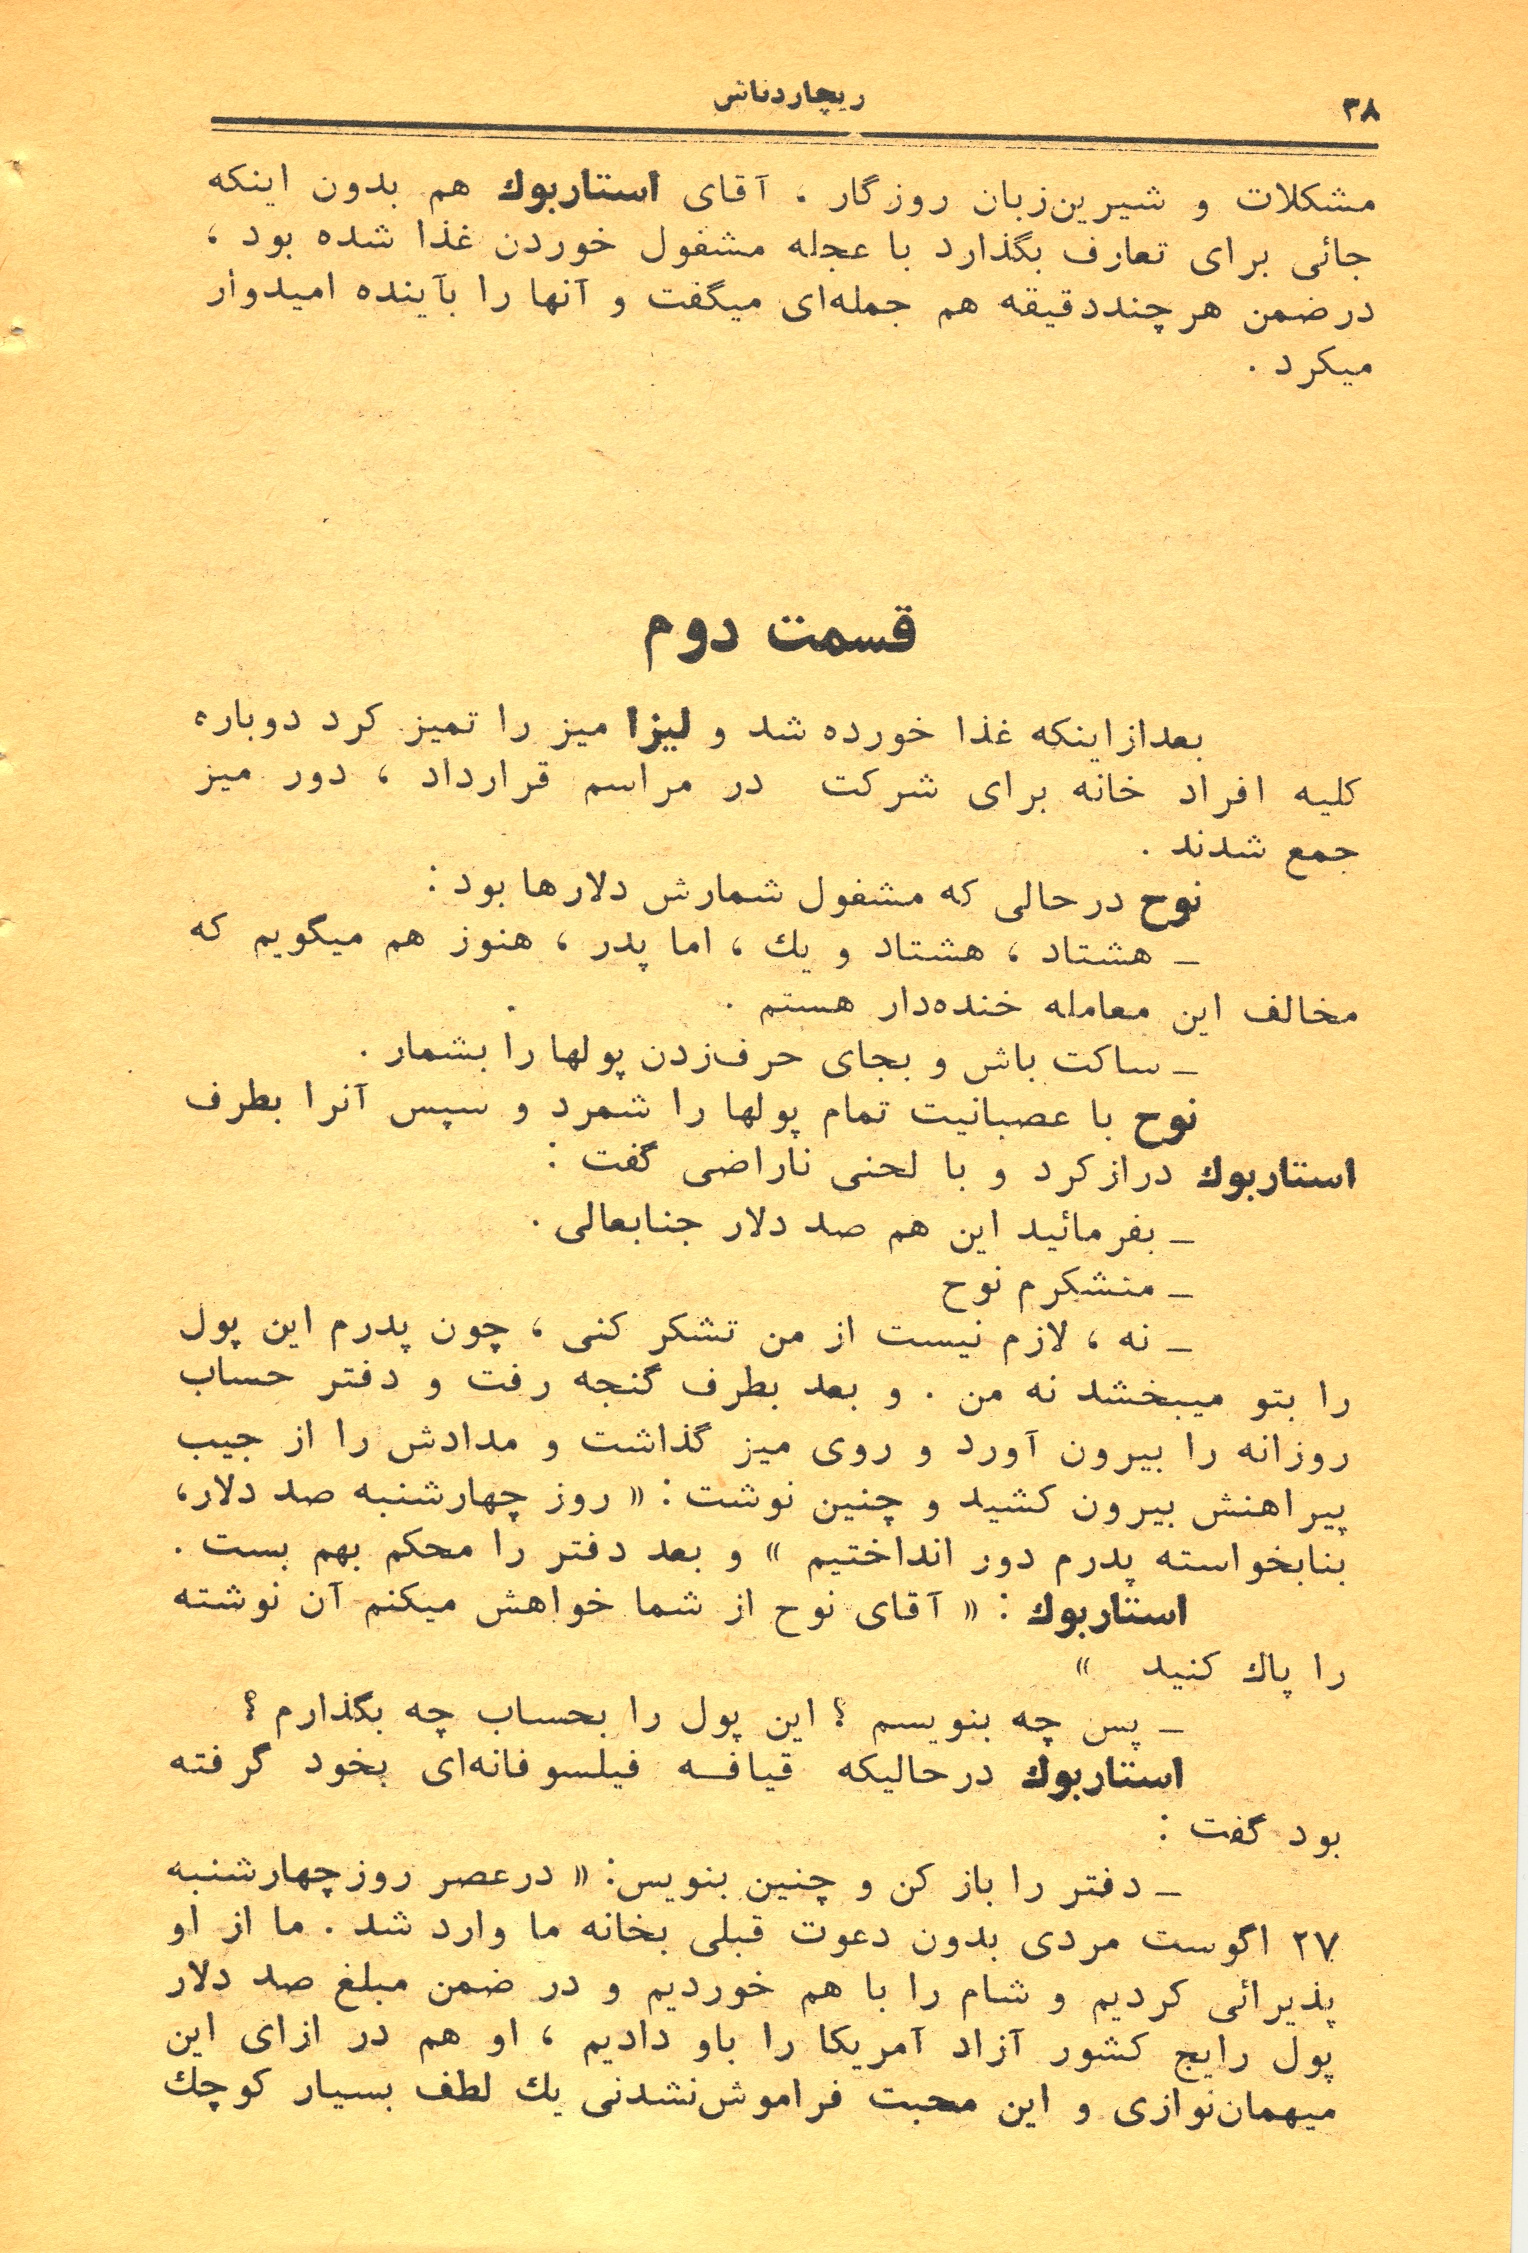 ۳۸
ریچاردناش
مشکلات و شیرین‌زبان روزگار ، آقای استاربوك هم بدون اینکه
جائی برای تعارف بگذارد با عجله مشغول خوردن غذا شده بود ،
درضمن هرچنددقیقه هم جمله‌ای میگفت و آنها را بآینده امیدوار
میکرد .
قسمت دوم
بعدازاینکه غذا خورده شد و لیزا میز را تمیز کرد دوباره
کلیه افراد خانه برای شرکت در مراسم قرارداد ، دور میز
جمع شدند .
نوح درحالی که مشغول شمارش دلارها بود :
ـ هشتاد ، هشتاد و یك ، اما پدر ، هنوز هم میگویم که
مخالف این معامله خنده‌دار هستم .
ـ ساکت باش و بجای حرف‌زدن پولها را بشمار .
نوح با عصبانیت تمام پولها را شمرد و سپس آنرا بطرف
استاربوك درازکرد و با لحنی ناراضی گفت :
ـ بفرمائید این هم صد دلار جنابعالی .
ـ متشکرم نوح
ـ نه ، لازم نیست از من تشکر کنی ، چون پدرم این پول
را بتو میبخشد نه من . و بعد بطرف گنجه رفت و دفتر حساب
روزانه را بیرون آورد و روی میز گذاشت و مدادش را از جیب
پیراهنش بیرون کشید و چنین نوشت : « روز چهارشنبه صد دلار،
بنابخواسته پدرم دور انداختیم » و بعد دفتر را محکم بهم بست .
استاربوك : « آقای نوح از شما خواهش میکنم آن نوشته
را پاك کنید »
ـ پس چه بنویسم ؟ این پول را بحساب چه بگذارم ؟
استاربوك درحالیکه قیافـه فیلسوفانه‌ای بخود گرفته
بود گفت :
ـ دفتر را باز کن و چنین بنویس: « درعصر روزچهارشنبه
۲۷ اگوست مردی بدون دعوت قبلی بخانه ما وارد شد . ما از او
پذیرائی کردیم و شام را با هم خوردیم و در ضمن مبلغ صد دلار
پول رایج کشور آزاد آمریکا را باو دادیم ، او هم در ازای این
میهمان‌نوازی و این محبت فراموش‌نشدنی یك لطف بسیار کوچك